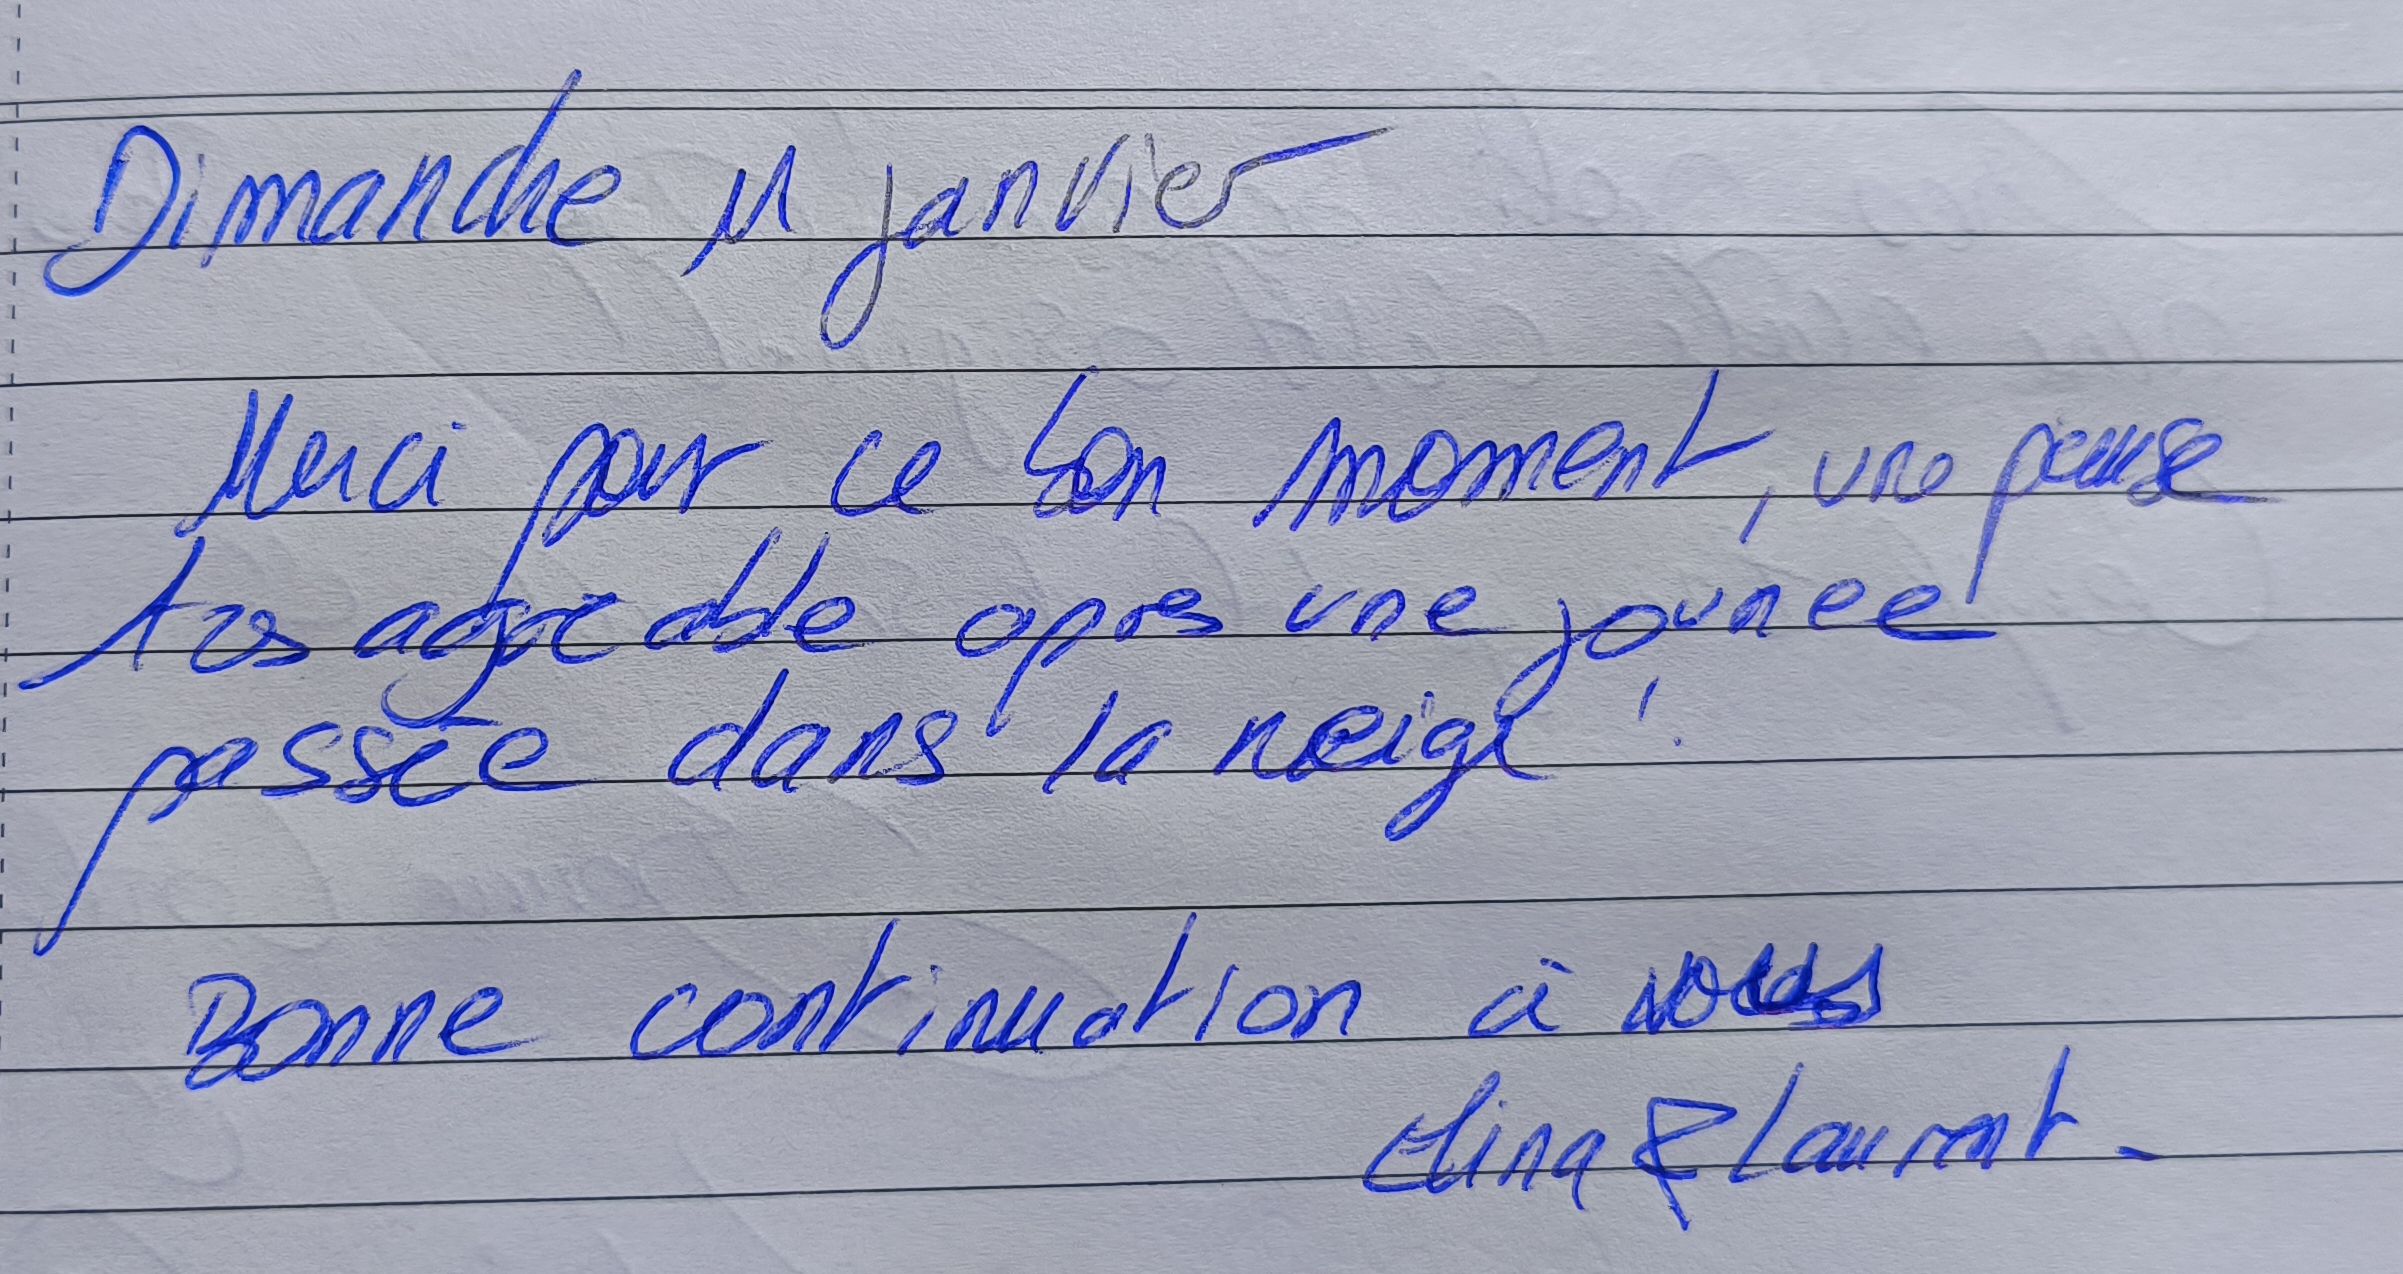 Dimanche 11 janvier
Merci pour ce bon moment, une pause
très agréable après une journée
passée dans la neige !
Bonne continuation à vous
Elina & Laurent.